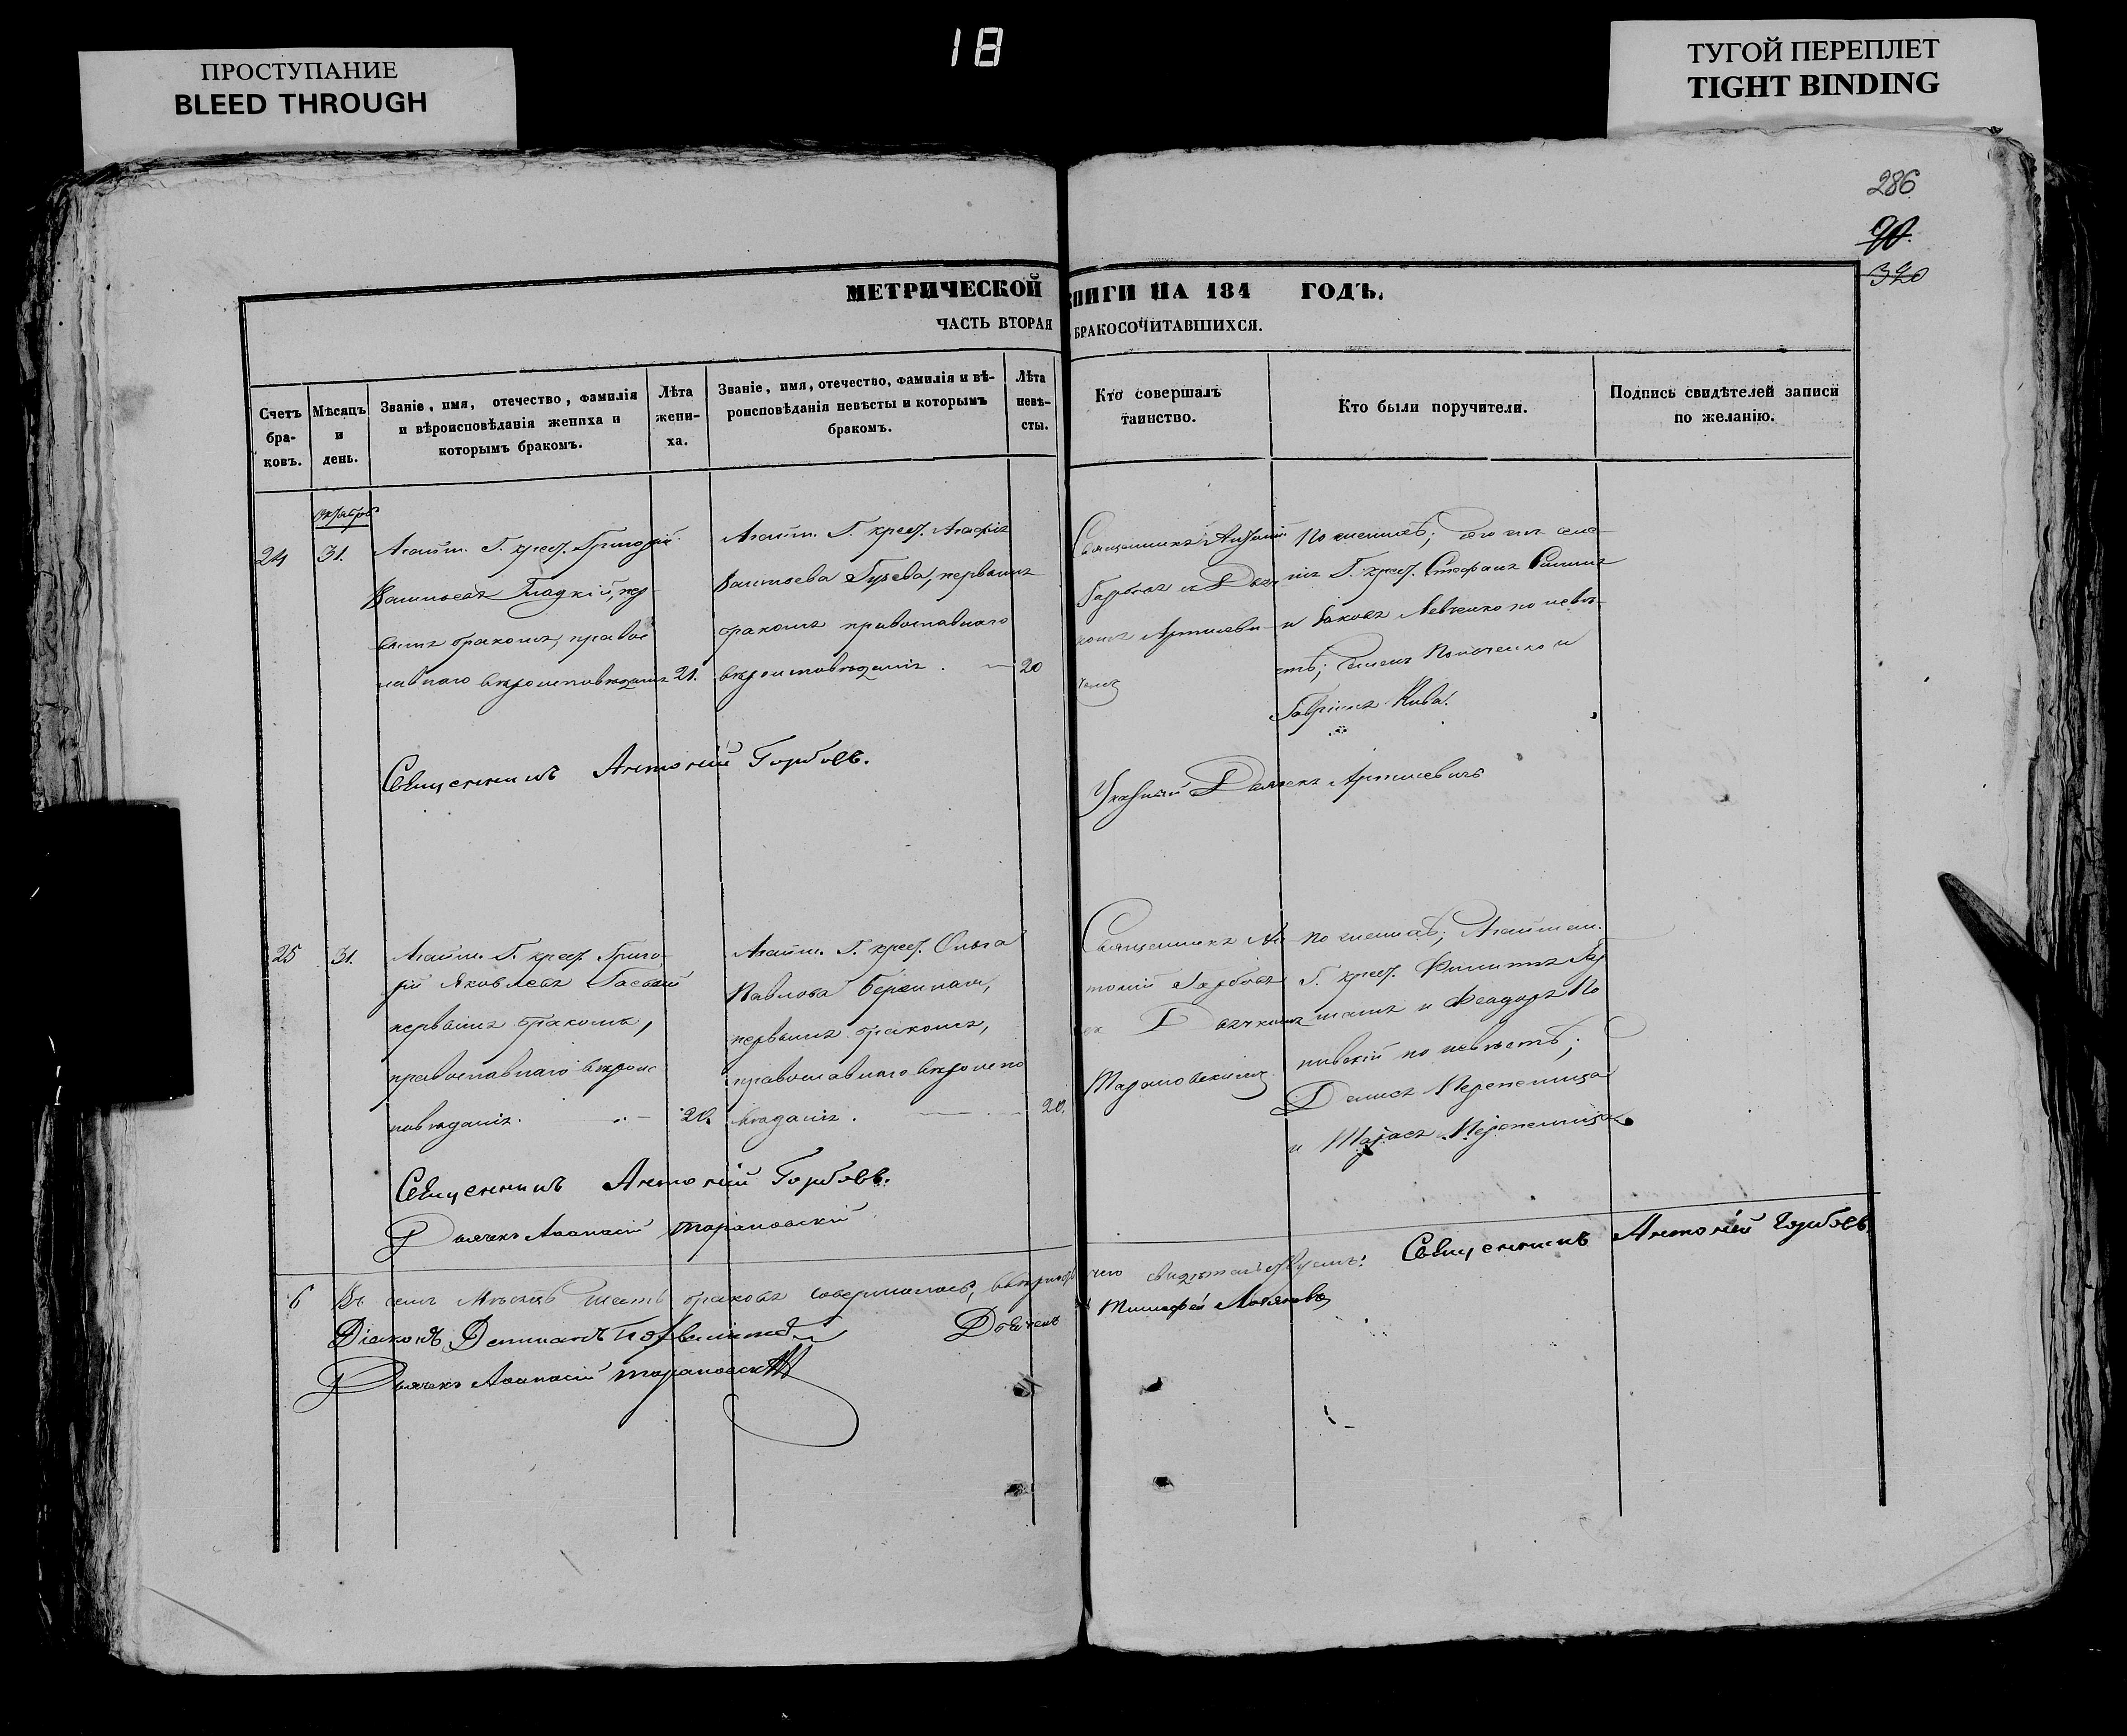 18
ПРОСТУПАНИЕ
BLEED THROUGH
ТУГОЙ ПЕРЕПЛЕТ
TIGHT BINDING
286
90.
320
МЕТРИЧЕСКОЙ КНИГИ НА 184 ГОДЪ.
ЧАСТЬ ВТОРАЯ БРАКОСОЧИТАВШИХСЯ.
Счетъ
бра-
ковъ.
Мѣсяцъ
и
день.
Званіе, имя, отечество, фамилія
и вѣроисповѣданія жениха и
которымъ бракомъ.
Лѣта
жени-
ха.
Званіе, имя, отечество, фамилія и вѣ-
роисповѣданія невѣсты и которымъ
бракомъ.
Лѣта
невѣ-
сты.
Кто совершалъ
таинство.
Кто были поручители.
Подпись свидѣтелей записи
по желанію.
Октября
24
31.
Г. крест. Григорій
Васильевъ Гладкій, пер
вымъ бракомъ, правос
лавнаго вѣроисповѣданія
21.
Г. крест. Агафія
Васильева Гусева, первымъ
бракомъ православнаго
вѣроисповѣданія.
20
Священникъ Антоній
Горбовъ и Дьяч
комъ Артисеви
чемъ
По женихѣ;
Г. крест. Стефанъ
и Яковъ Левченко по невѣ-
стѣ; и
Гавріилъ Кива.
Священникъ Антоній Горбовъ.
Указный Дьячекъ Артисевичъ
25
31.
Г. крест. Григо-
рій Яковлевъ
первымъ бракомъ,
православнаго вѣроис
повѣданія.
20.
Г. крест. Ольга
Павлова
первымъ бракомъ,
православнаго вѣроиспо
вѣданія.
20.
Священникъ Ан
тоній Горбовъ
съ Дьячкомъ
Тарановскимъ
По женихѣ;
Г. крест. Филиппъ
и Феодоръ По
по невѣстѣ;
Денисъ Перепелица
и Тарасъ Перепелица
Священникъ Антоній Горбовъ.
Дьячекъ Аѳанасій Тарановскій
6
Въ семъ Мѣсяцѣ шесть браковъ совершилось, въ вѣрности чего свидѣтельствуемъ: Священникъ Антоній Горбовъ
Діаконъ Дьячекъ Тимофей
Дьячекъ Аѳанасій Тарановскій